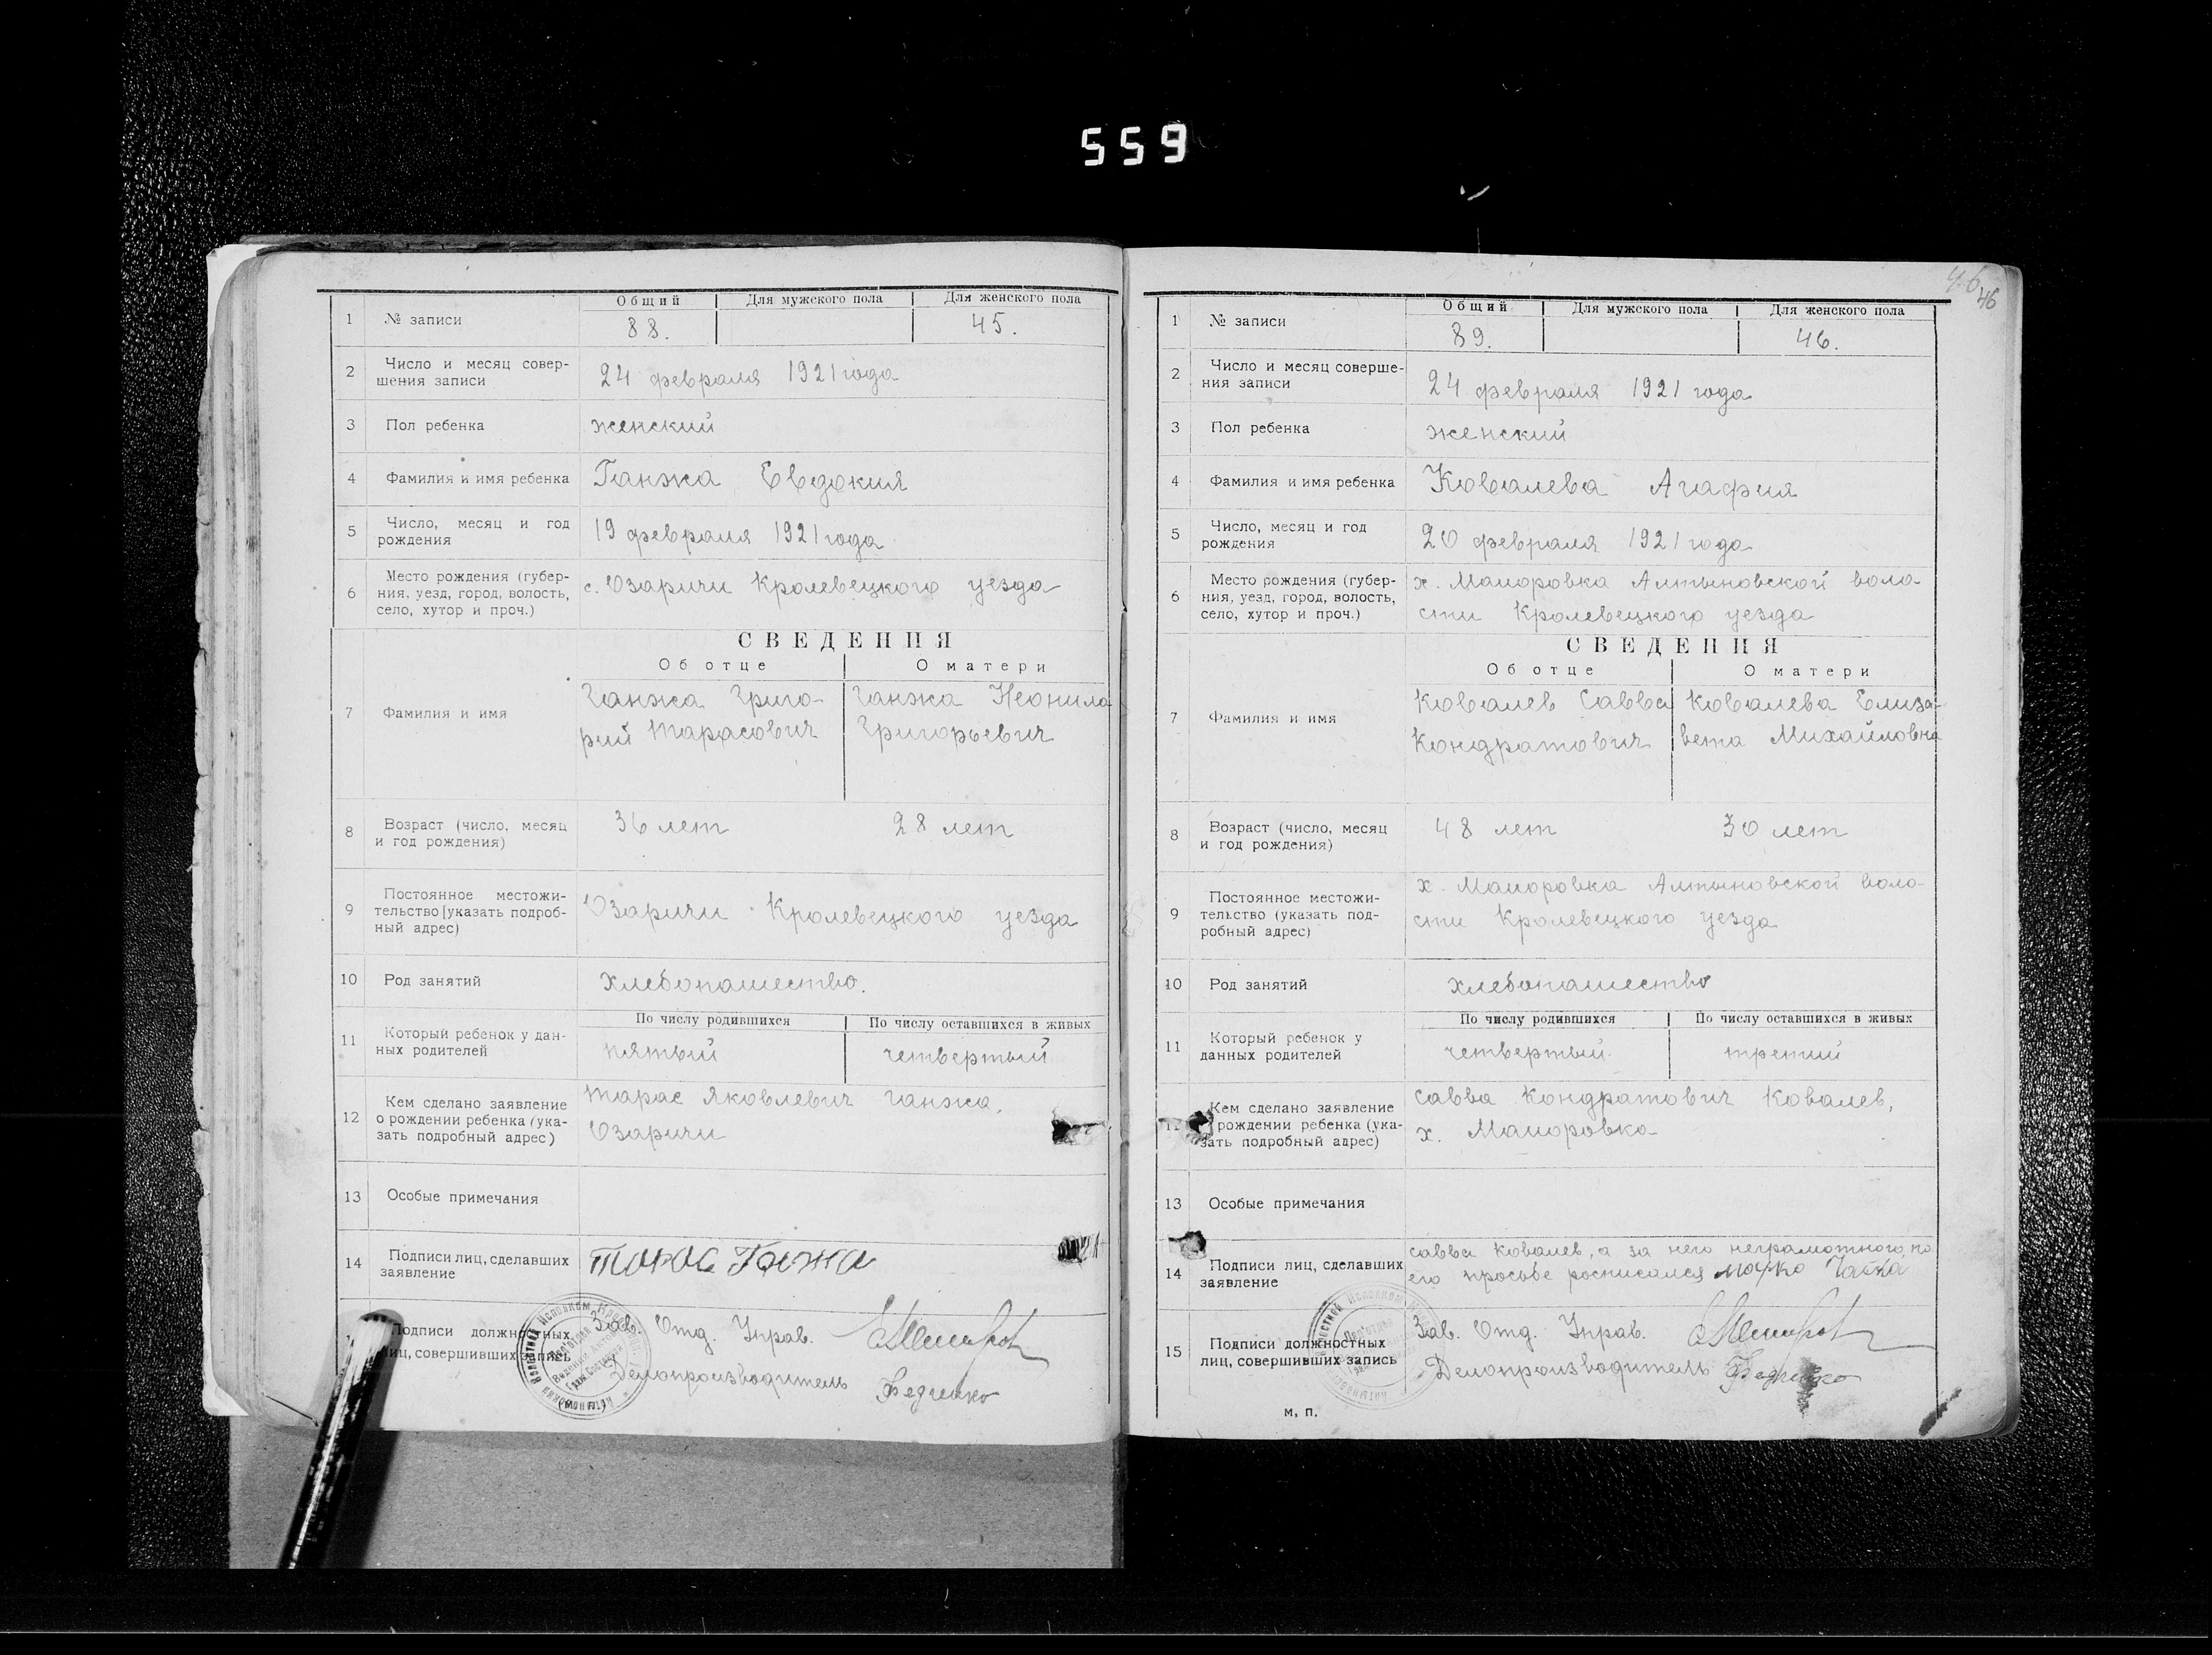 559
Общий Для мужского пола Для женского пола
1 № записи 88. 45.
2 Число и месяц совер-
шения записи
24 февраля 1921 года
3 Пол ребенка женский
4 Фамилия и имя ребенка Ганжа Евдокия
5 Число, месяц и год
рождения
19 февраля 1921 года
6 Место рождения (губер-
ния, уезд, город, волость,
село, хутор и проч.)
с. Озаричи Кролевецкого уезда
СВЕДЕНИЯ
Об отце О матери
7 Фамилия и имя
Ганжа Григо-
рий Тарасович
Ганжа Неонила
Григорьевич
8 Возраст (число, месяц
и год рождения)
36 лет 28 лет
9 Постоянное местожи-
тельство [указать подроб-
ный адрес)
Озаричи Кролевецкого уезда
10 Род занятий хлебопашество.
11 Который ребенок у дан-
ных родителей
По числу родившихся По числу оставшихся в живых
пятый четвертый
12 Кем сделано заявление
о рождении ребенка (ука-
зать подробный адрес)
Тарас Яковлевич Ганжа,
Озаричи
13 Особые примечания
14 Подписи лиц, сделавших
заявление
Тарас Ганжа
Подписи должностных
лиц, совершивших запись
Зав. Отд. Управ.
Делопроизводитель Федченко
46
46
Общий Для мужского пола Для женского пола
1 № записи 89. 46.
2 Число и месяц соверше-
ния записи
24 февраля 1921 года
3 Пол ребенка женский
4 Фамилия и имя ребенка Ковалева Агафия
5 Число, месяц и год
рождения
20 февраля 1921 года
6 Место рождения (губер-
ния, уезд, город, волость,
село, хутор и проч.)
х. Маиоровка Алтыновской воло-
сти Кролевецкого уезда
СВЕДЕНИЯ
Об отце О матери
7 Фамилия и имя
Ковалев Савва
Кондратович
Ковалева Елиза-
вета Михайловна
8 Возраст (число, месяц
и год рождения)
48 лет 30 лет
9 Постоянное местожи-
тельство (указать под-
робный адрес)
х. Маиоровка Алтыновской воло-
сти Кролевецкого уезда
10 Род занятий хлебопашество
11 Который ребенок у
данных родителей
По числу родившихся По числу оставшихся в живых
четвертый третий
12 Кем сделано заявление
рождении ребенка (ука-
зать подробный адрес)
Савва Кондратович Ковалев,
х. Маиоровка
13 Особые примечания
14 Подписи лиц, сделавших
заявление
Савва Ковалев, а за него неграмотного, по
его просьбе росписался
15 Подписи должностных
лиц, совершивших запись
Зав. Отд. Управ.
Делопроизводитель Федченко
м. п.